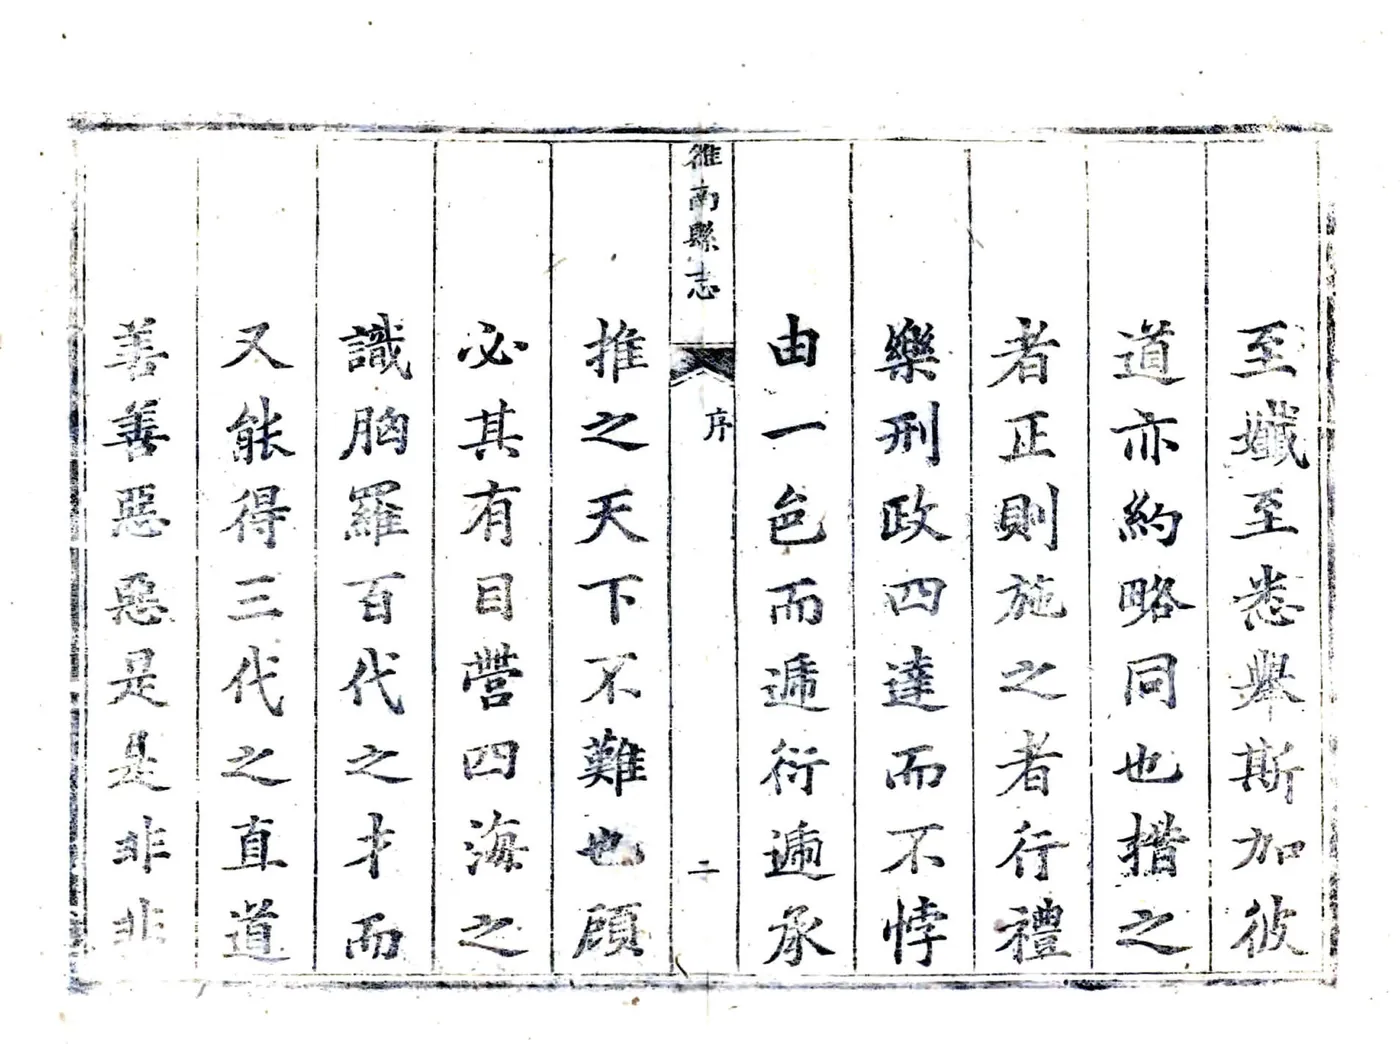 至孅至悉舉斯加彼
道亦約略同也措之
者正則施之者行禮
樂刑政四達而不悖
由一邑而遞衍遞承
雒南縣志
序
二
推之天下不難也顧
必其有目營四海之
識胸羅百代之才而
又能得三代之直道
善善惡惡是是非非